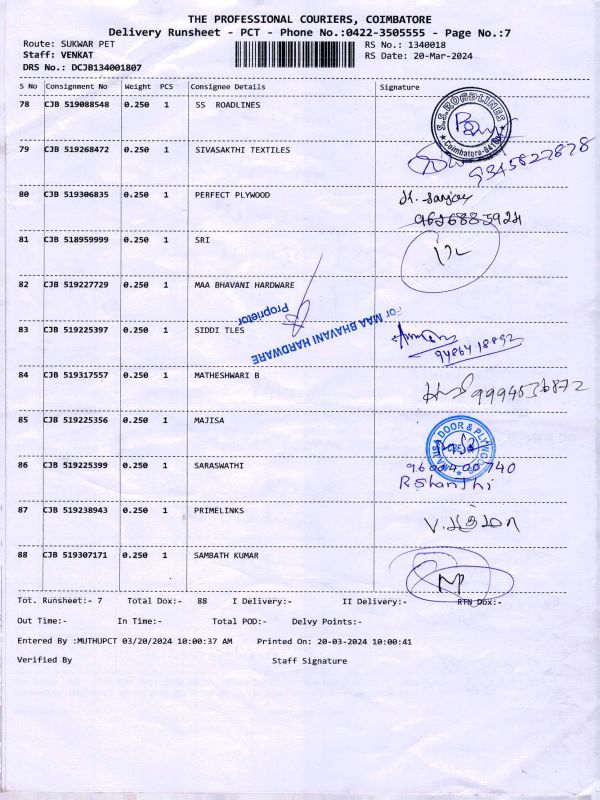 THE PROFESSIONAL COURIERS, COIMBATORE
Delivery Runsheet - PCT - Phone No.:0422-3505555 - Page No.:7
Route: SUKWAR PET RS No.: 1340018
Staff: VENKAT RS Date: 20-Mar-2024
DRS No.: DCJB134001807
S No Consignment No Weight PCS Consignee Details Signature
78 CJB 519088548 0.250 1 SS ROADLINES
S.S.ROADLINES
79 CJB 519268472 0.250 1 SIVASAKTHI TEXTILES
80 CJB 519306835 0.250 1 PERFECT PLYWOOD
81 CJB 518959999 0.250 1 SRI
82 CJB 519227729 0.250 1 MAA BHAVANI HARDWARE
For MAA BHAVANI HARDWARE
Proprietor
83 CJB 519225397 0.250 1 SIDDI TLES
84 CJB 519317557 0.250 1 MATHESHWARI B
85 CJB 519225356 0.250 1 MAJISA
86 CJB 519225399 0.250 1 SARASWATHI
R Shanthi
87 CJB 519238943 0.250 1 PRIMELINKS
88 CJB 519307171 0.250 1 SAMBATH KUMAR
Tot. Runsheet:- 7 Total Dox:- 88 I Delivery:- II Delivery:- RTN Dox:-
Out Time:- In Time:- Total POD:- Delvy Points:-
Entered By :MUTHUPCT 03/20/2024 10:00:37 AM Printed On: 20-03-2024 10:00:41
Verified By Staff Signature